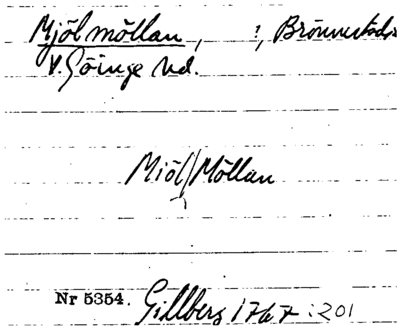 Mjölmöllan, !, Brönnestads
V. Göinge hd.
Miöl//Möllan
Nr 5354. Gillberg 1767:201